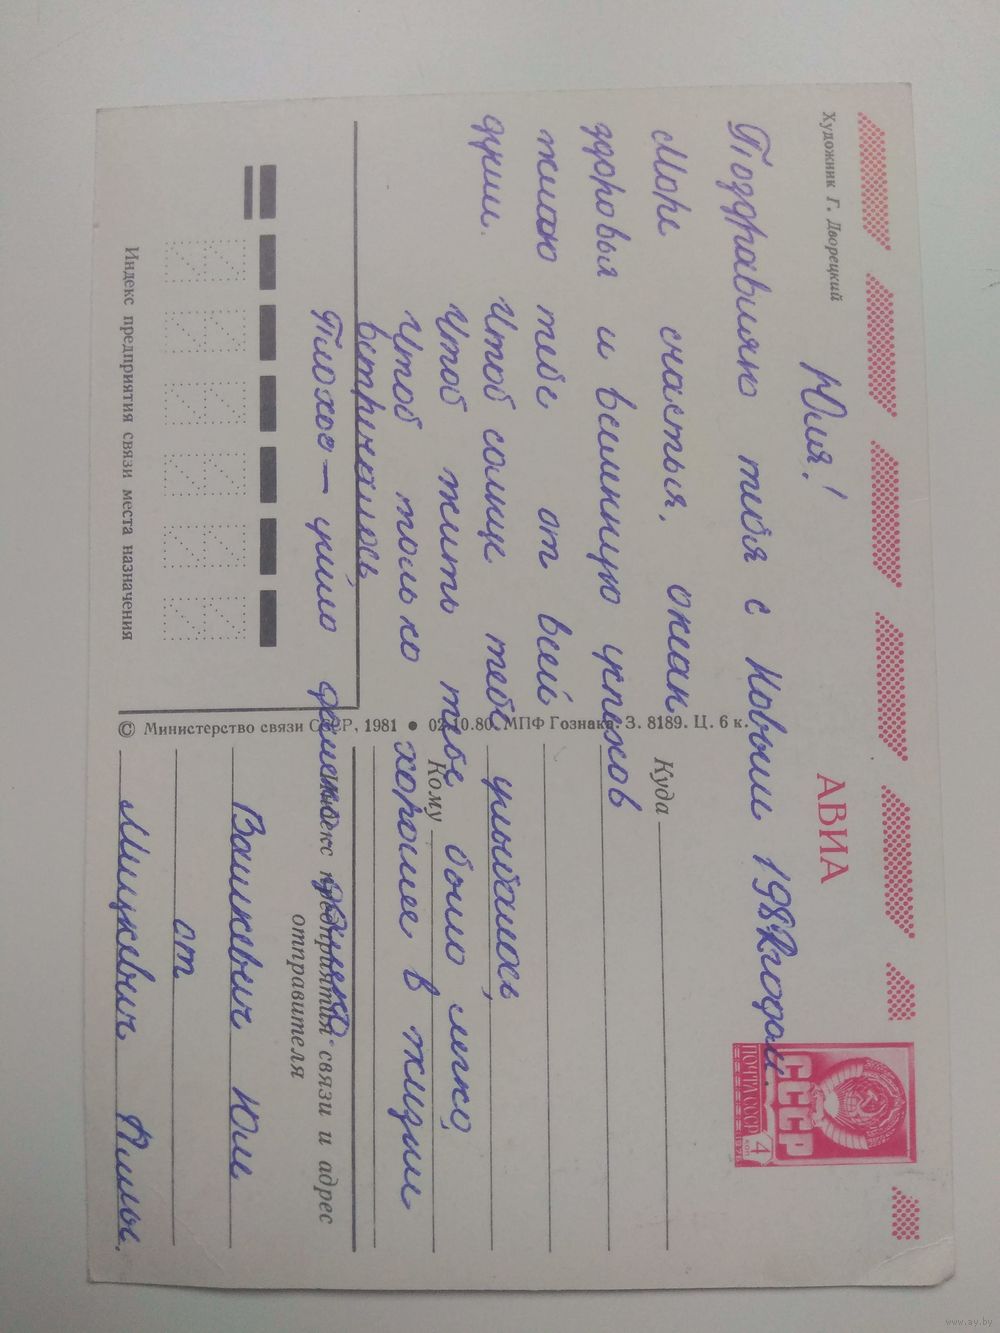 Художник Г. Дворецкий
АВИА
ПОЧТА СССР
СССР
4
коп
Юля!
Поздравляю тебя с Новым 1982 годом.
Море счастья, океан
здоровья и великную успехов
желаю тебе от всей
души.
Чтоб солнце тебе улыбалось,
Чтоб жить тебе было легко,
Чтоб только хорошее в жизни
встречалось
Плохое — ушло далеко далеко.
Куда
Кому
© Министерство связи СССР, 1981 ● 02.10.80. МПФ Гознака. З. 8189. Ц. 6 к.
Индекс предприятия связи и адрес
отправителя
Индекс предприятия связи места назначения
Вашкевич Юле
от
Мицкевич Аллы.
www.ay.by